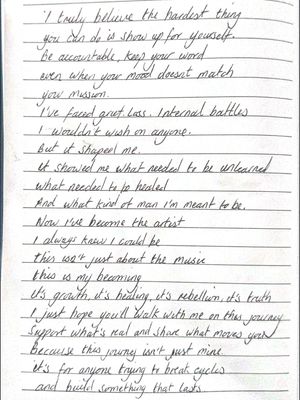 'I truly believe the hardest thing
you can do is show up for yourself.
Be accountable, keep your word
even when your mood doesnt match
your mission.
I've faced grief, loss. Internal battles
I wouldn't wish on anyone.
But it shaped me.
it showed me what needed to be unlearned
what needed to be healed
And what kind of man I'm meant to be.
Now I've become the artist
I always knew I could be
this isn't just about the music
this is my becoming
it's growth, it's healing, it's rebellion, it's truth
I just hope you'll walk with me on this journey
Support what's real and share what moves you
Because this journey isn't just mine
it's for anyone trying to break cycles
and build something that lasts